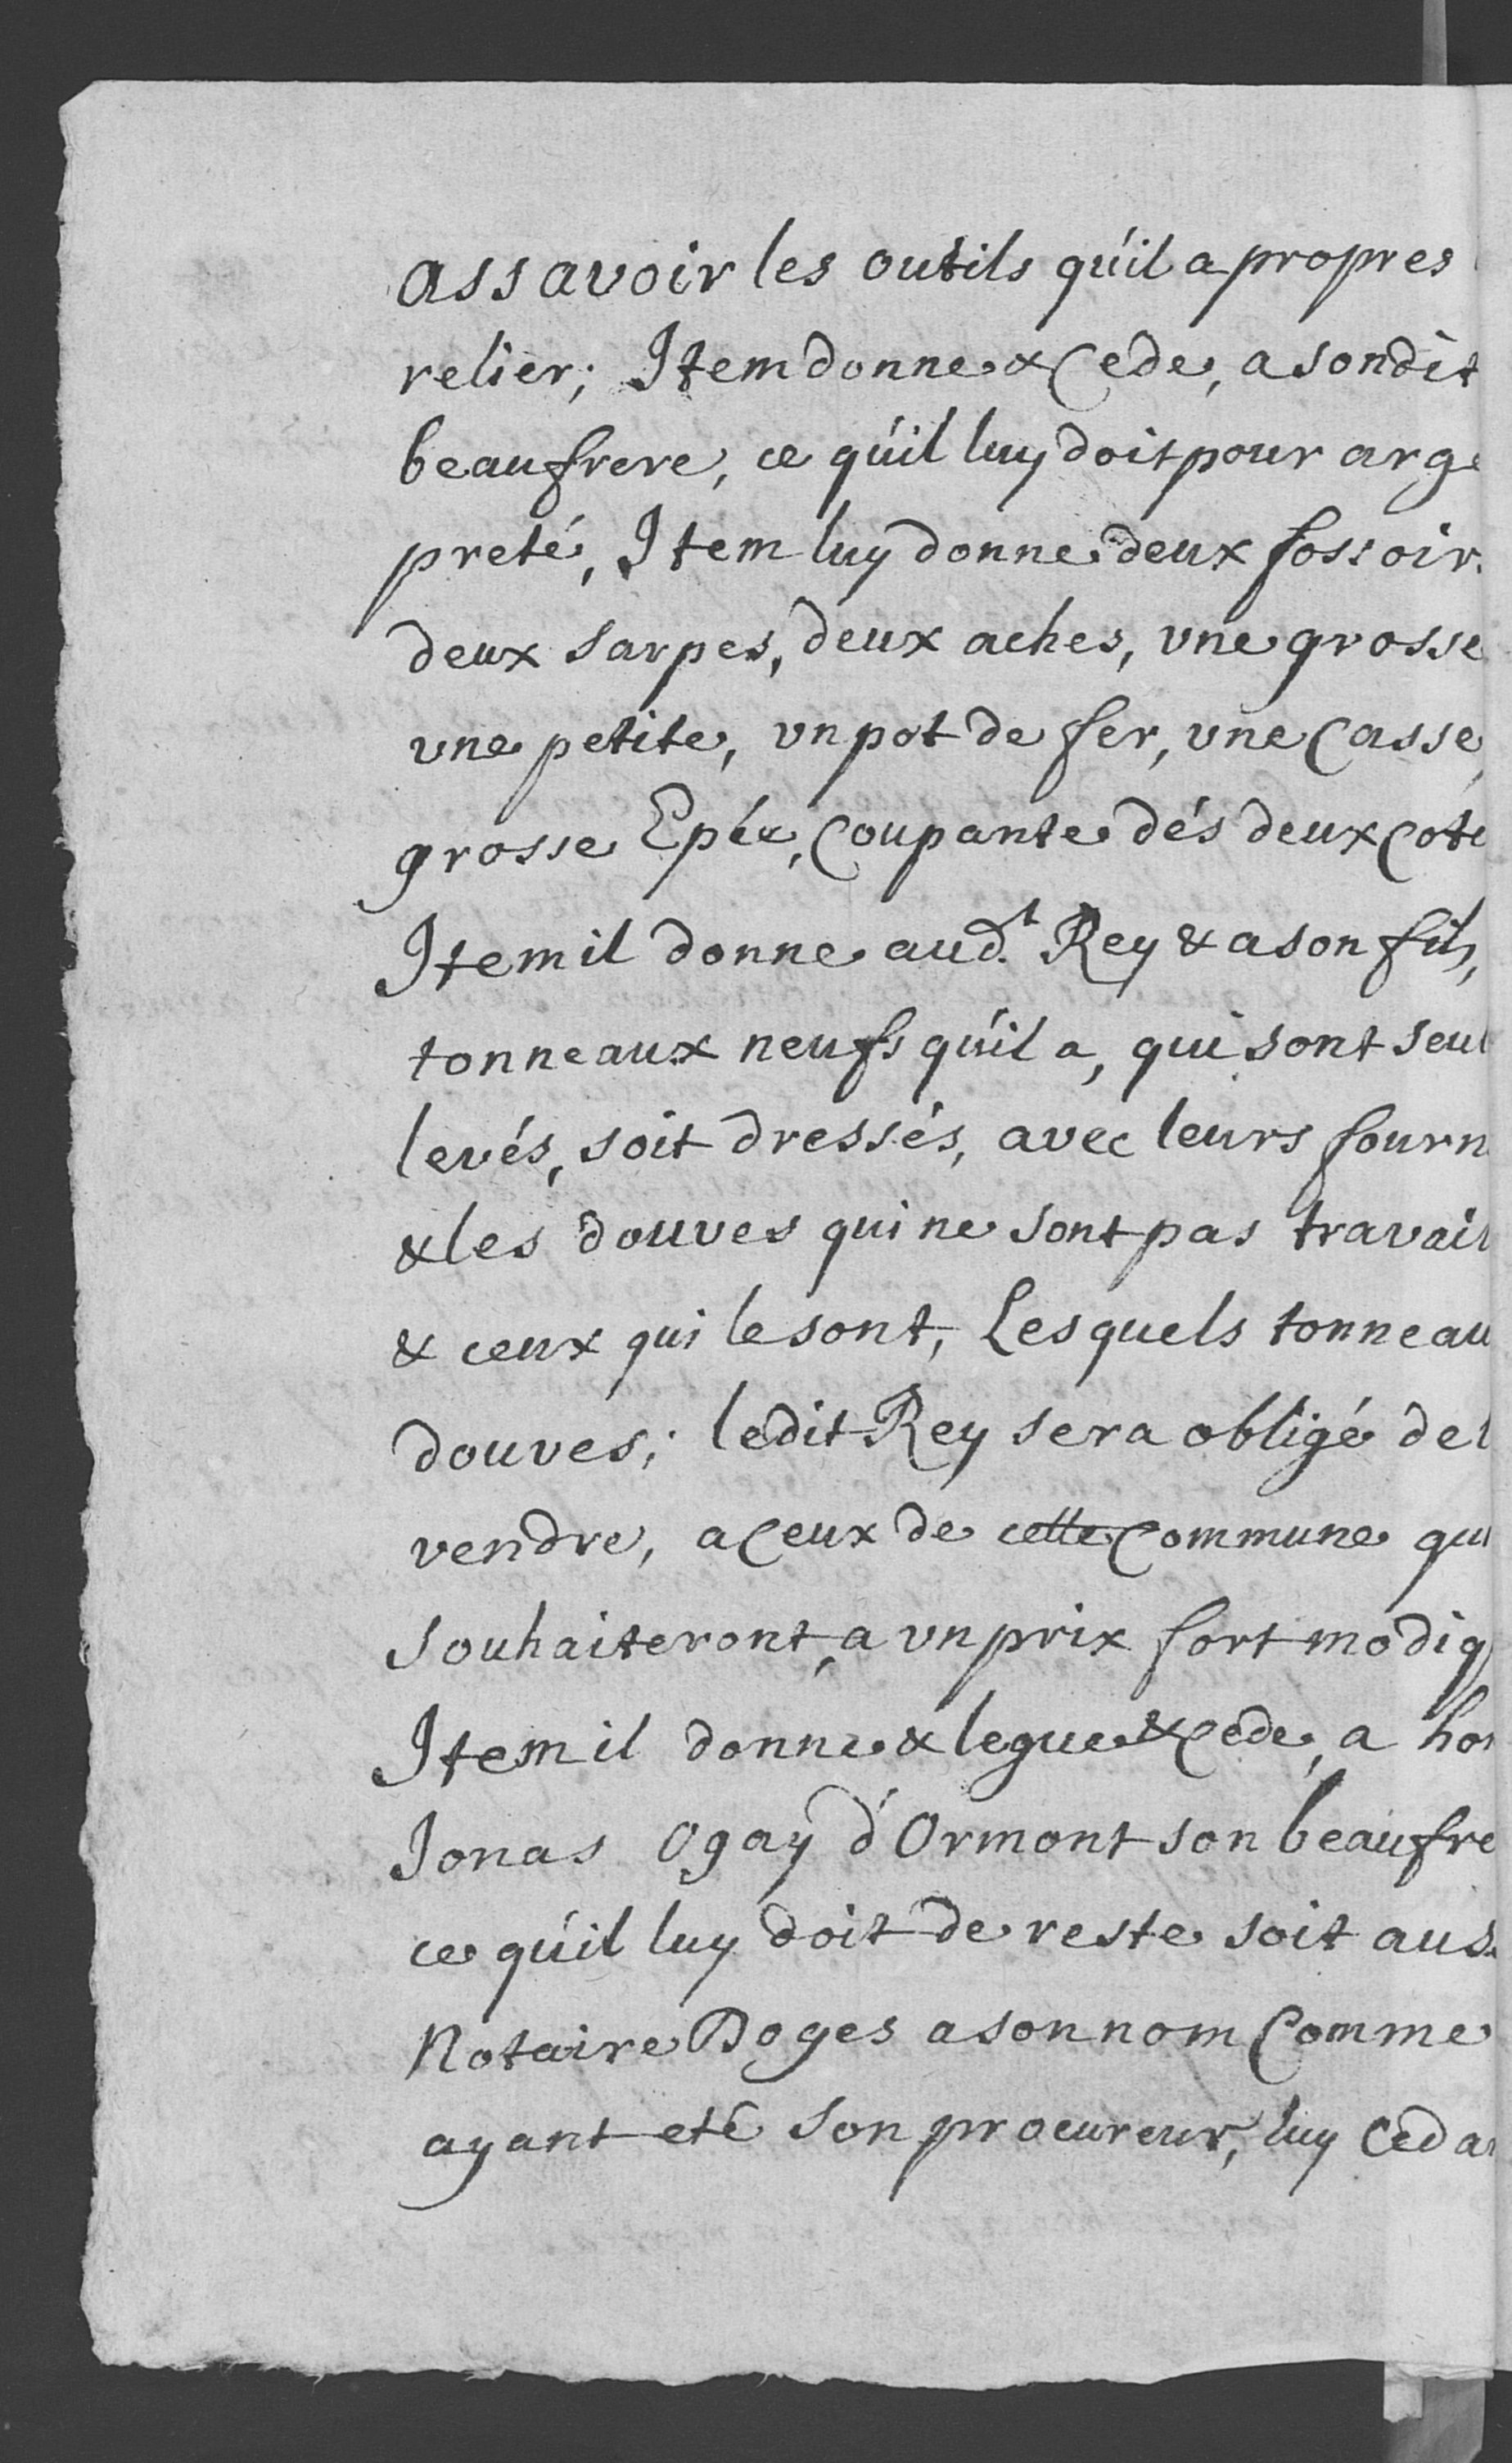 assavoir les outils qu'il a propres
relier; Item donne & Cede, a sondit
beaufrere, ce qu'il luy doit pour arge
preté, Item luy donne deux fossoir
deux sarpes, deux aches, vne grosse
vne petite, vn pot de fer, vne Casse,
grosse Epée, Coupante dés deux Coté
Item il donne aud.t Rey & a son fils,
tonneaux neufs qu'il a, qui sont seul
levés, soit dressés, avec leurs fourn
& les douves qui ne sont pas travail
& ceux qui le sont, Lesquels tonneau
douves; ledit Rey sera obligé de l
vendre, a Ceux de cette Commune qui
souhaiteront, a vn prix fort modiq
Item il donne & legue & Cede, a ho
Jonas Ogaÿ d'Ormont son beaufre
ce qu'il luy doit de reste soit aus
Notaire Doges a son nom Comme
ayant eté son procureur, luy Ceda